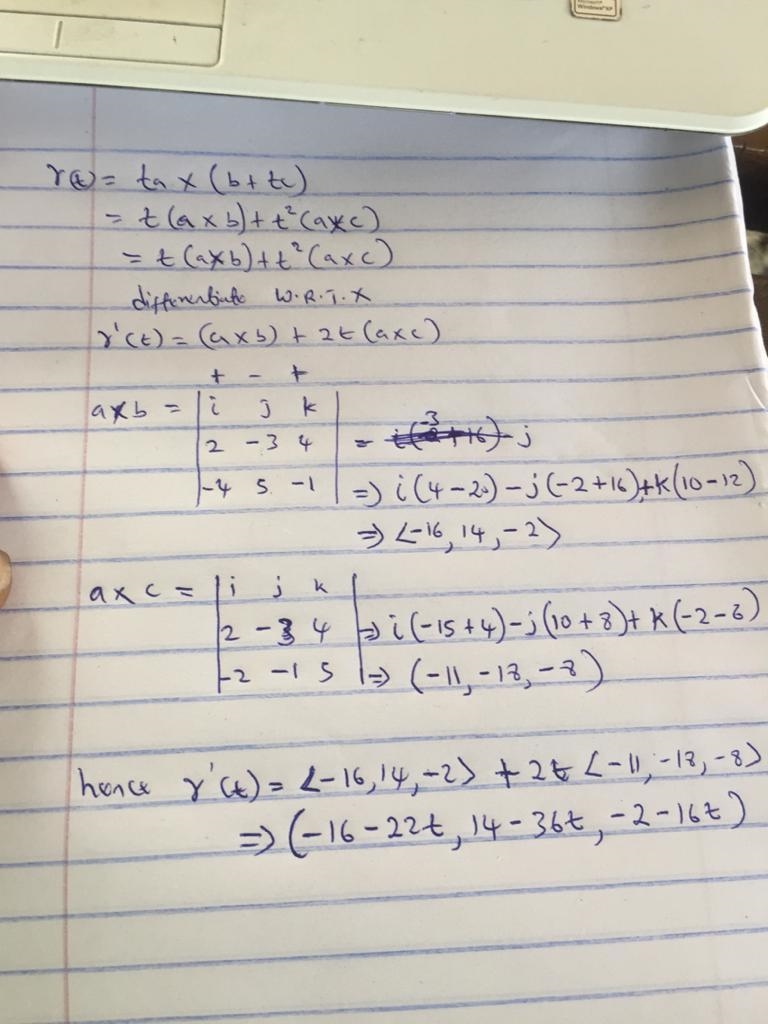 Windows XP
r(t) = ta × (b + tc)
= t(a × b) + t²(a × c)
= t(a × b) + t²(a × c)
differentiate W.R.T.X
r'(t) = (a × b) + 2t(a × c)
+ - +
a × b = | i j k |
| 2 -3 4 | = j
| -4 5 -1 | => i(4-20) - j(-2+16) + k(10-12)
=> <-16, 14, -2>
a × c = | i j k |
| 2 -3 4 | => i(-15+4) - j(10+8) + k(-2-6)
| -2 -1 5 | => (-11, -18, -8)
hence r'(t) = <-16, 14, -2> + 2t <-11, -18, -8>
=> (-16-22t, 14-36t, -2-16t)